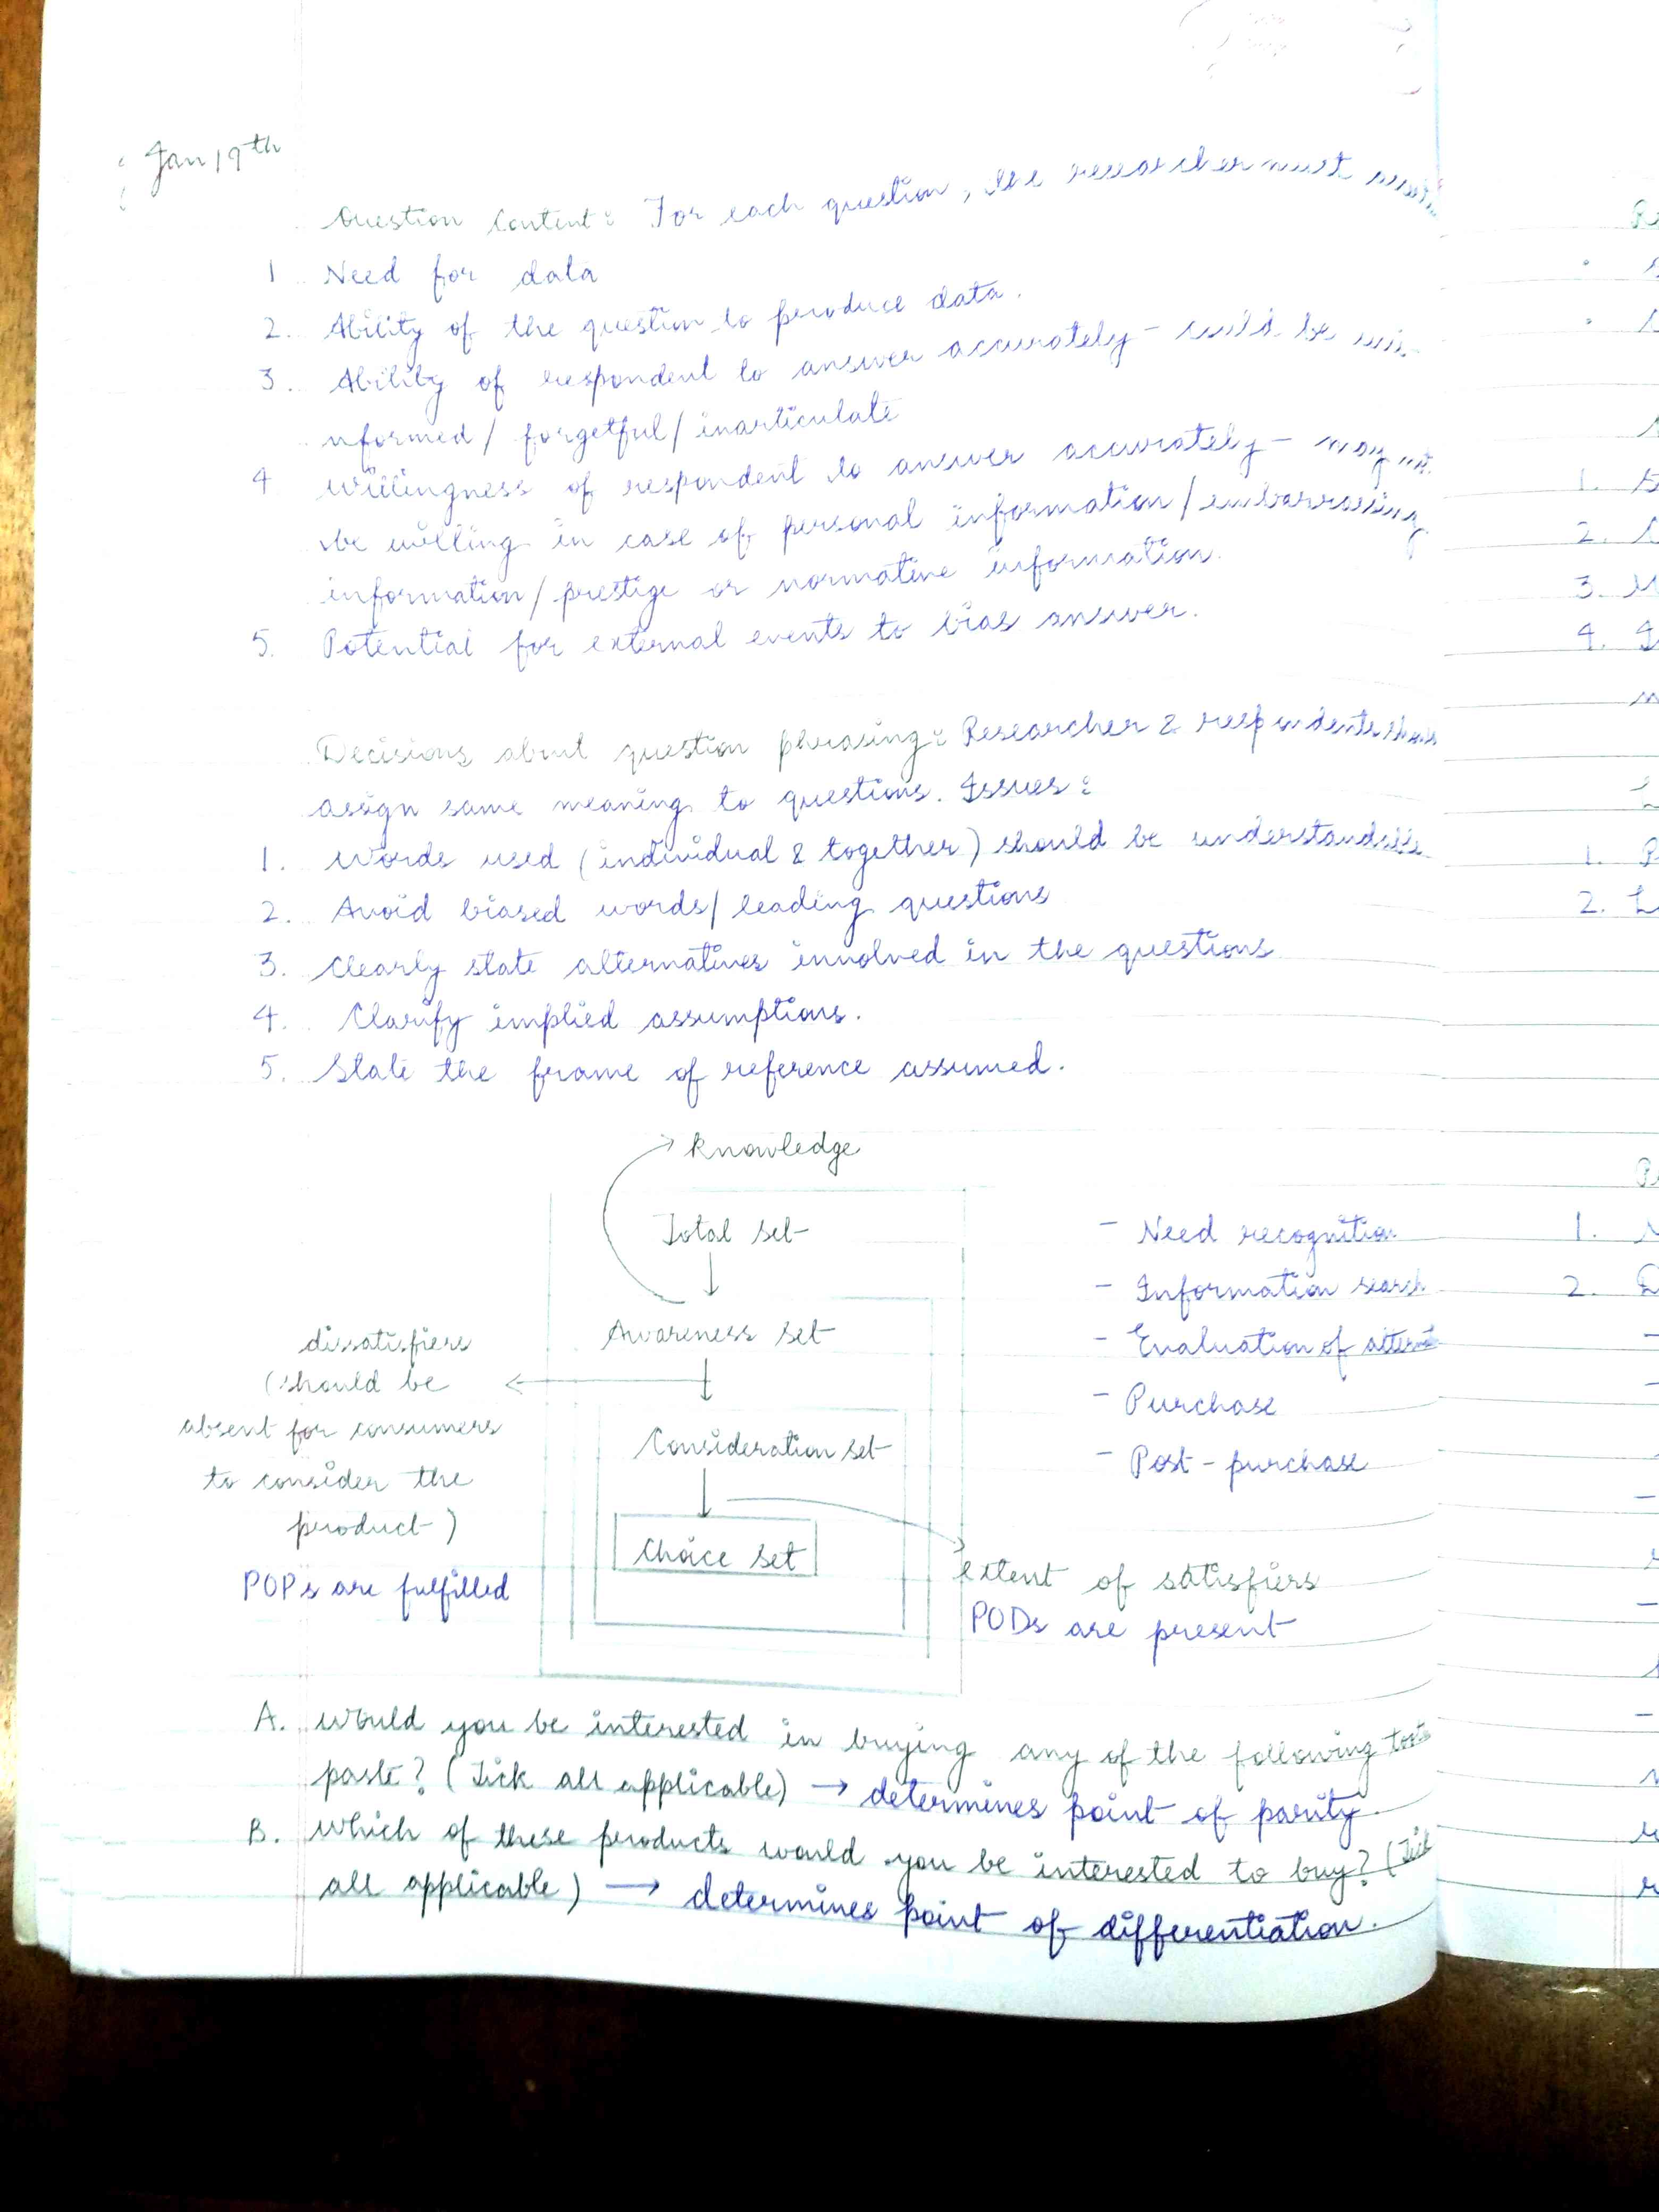 Jan 19th
Question Content: For each question, the researcher must
1 Need for data
2. Ability of the question to produce data.
3. Ability of respondent to answer accurately - could be uni-
nformed / forgetful / inarticulate
4 Willingness of respondent to answer accurately - may not
be willing in case of personal information / embarrassing
information / prestige or normative information.
5. Potential for external events to bias answer.
Decisions about question phrasing: Researcher & respondents should
assign same meaning to questions. Issues:
1. Words used (individual & together) should be understandable
2. Avoid biased words / leading questions
3. Clearly state alternatives involved in the questions
4. Clarify implied assumptions.
5. State the frame of reference assumed.
knowledge
Total set
Awareness set
Consideration set
Choice set
dissatisfiers
(should be
absent for consumers
to consider the
product)
POPs are fulfilled
extent of satisfiers
PODs are present
- Need recognition
- Information search
- Evaluation of
- Purchase
- Post-purchase
A. Would you be interested in buying any of the following
paste? (Tick all applicable) → determines point of parity.
B. Which of these products would you be interested to buy? (Tick
all applicable) → determines point of differentiation.
1.
2.
3.
4.
1.
2.
1.
2.